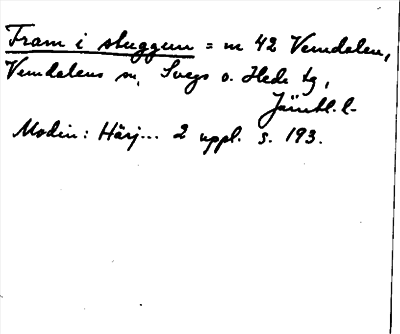 Fram i stuggun = nr 42 Vemdalen,
Vemdalens sn, Svegs o. Hede tg,
Jämtl. l.
Modin: Härj... 2 uppl. s. 193.